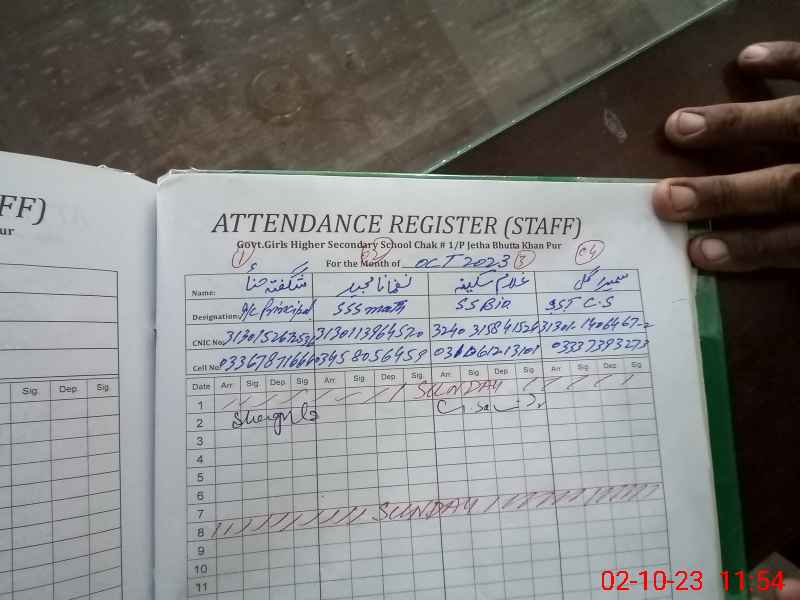 FF)
ur
ATTENDANCE REGISTER (STAFF)
Govt.Girls Higher Secondary School Chak # 1/P Jetha Bhutta Khan Pur
For the Month of OCT 2023
1 2 3 04
Name: شگفتہ حناء نغمانا مجید غلام سکینہ سمیرا گل
Designation: I/C Principal SSS math SS Bio SST C.S
CNIC No:
Cell No: 03458056459 03337393273
Date Arr. Sig. Dep. Sig Arr. Sig. Dep. Sig. Arr. Sig. Dep. Sig Arr. Sig. Dep. Sig
Sig. Dep. Sig.
1 SUNDAY
2
3
4
5
6
7
8 SUNDAY
9
10
11
02-10-23 11:54